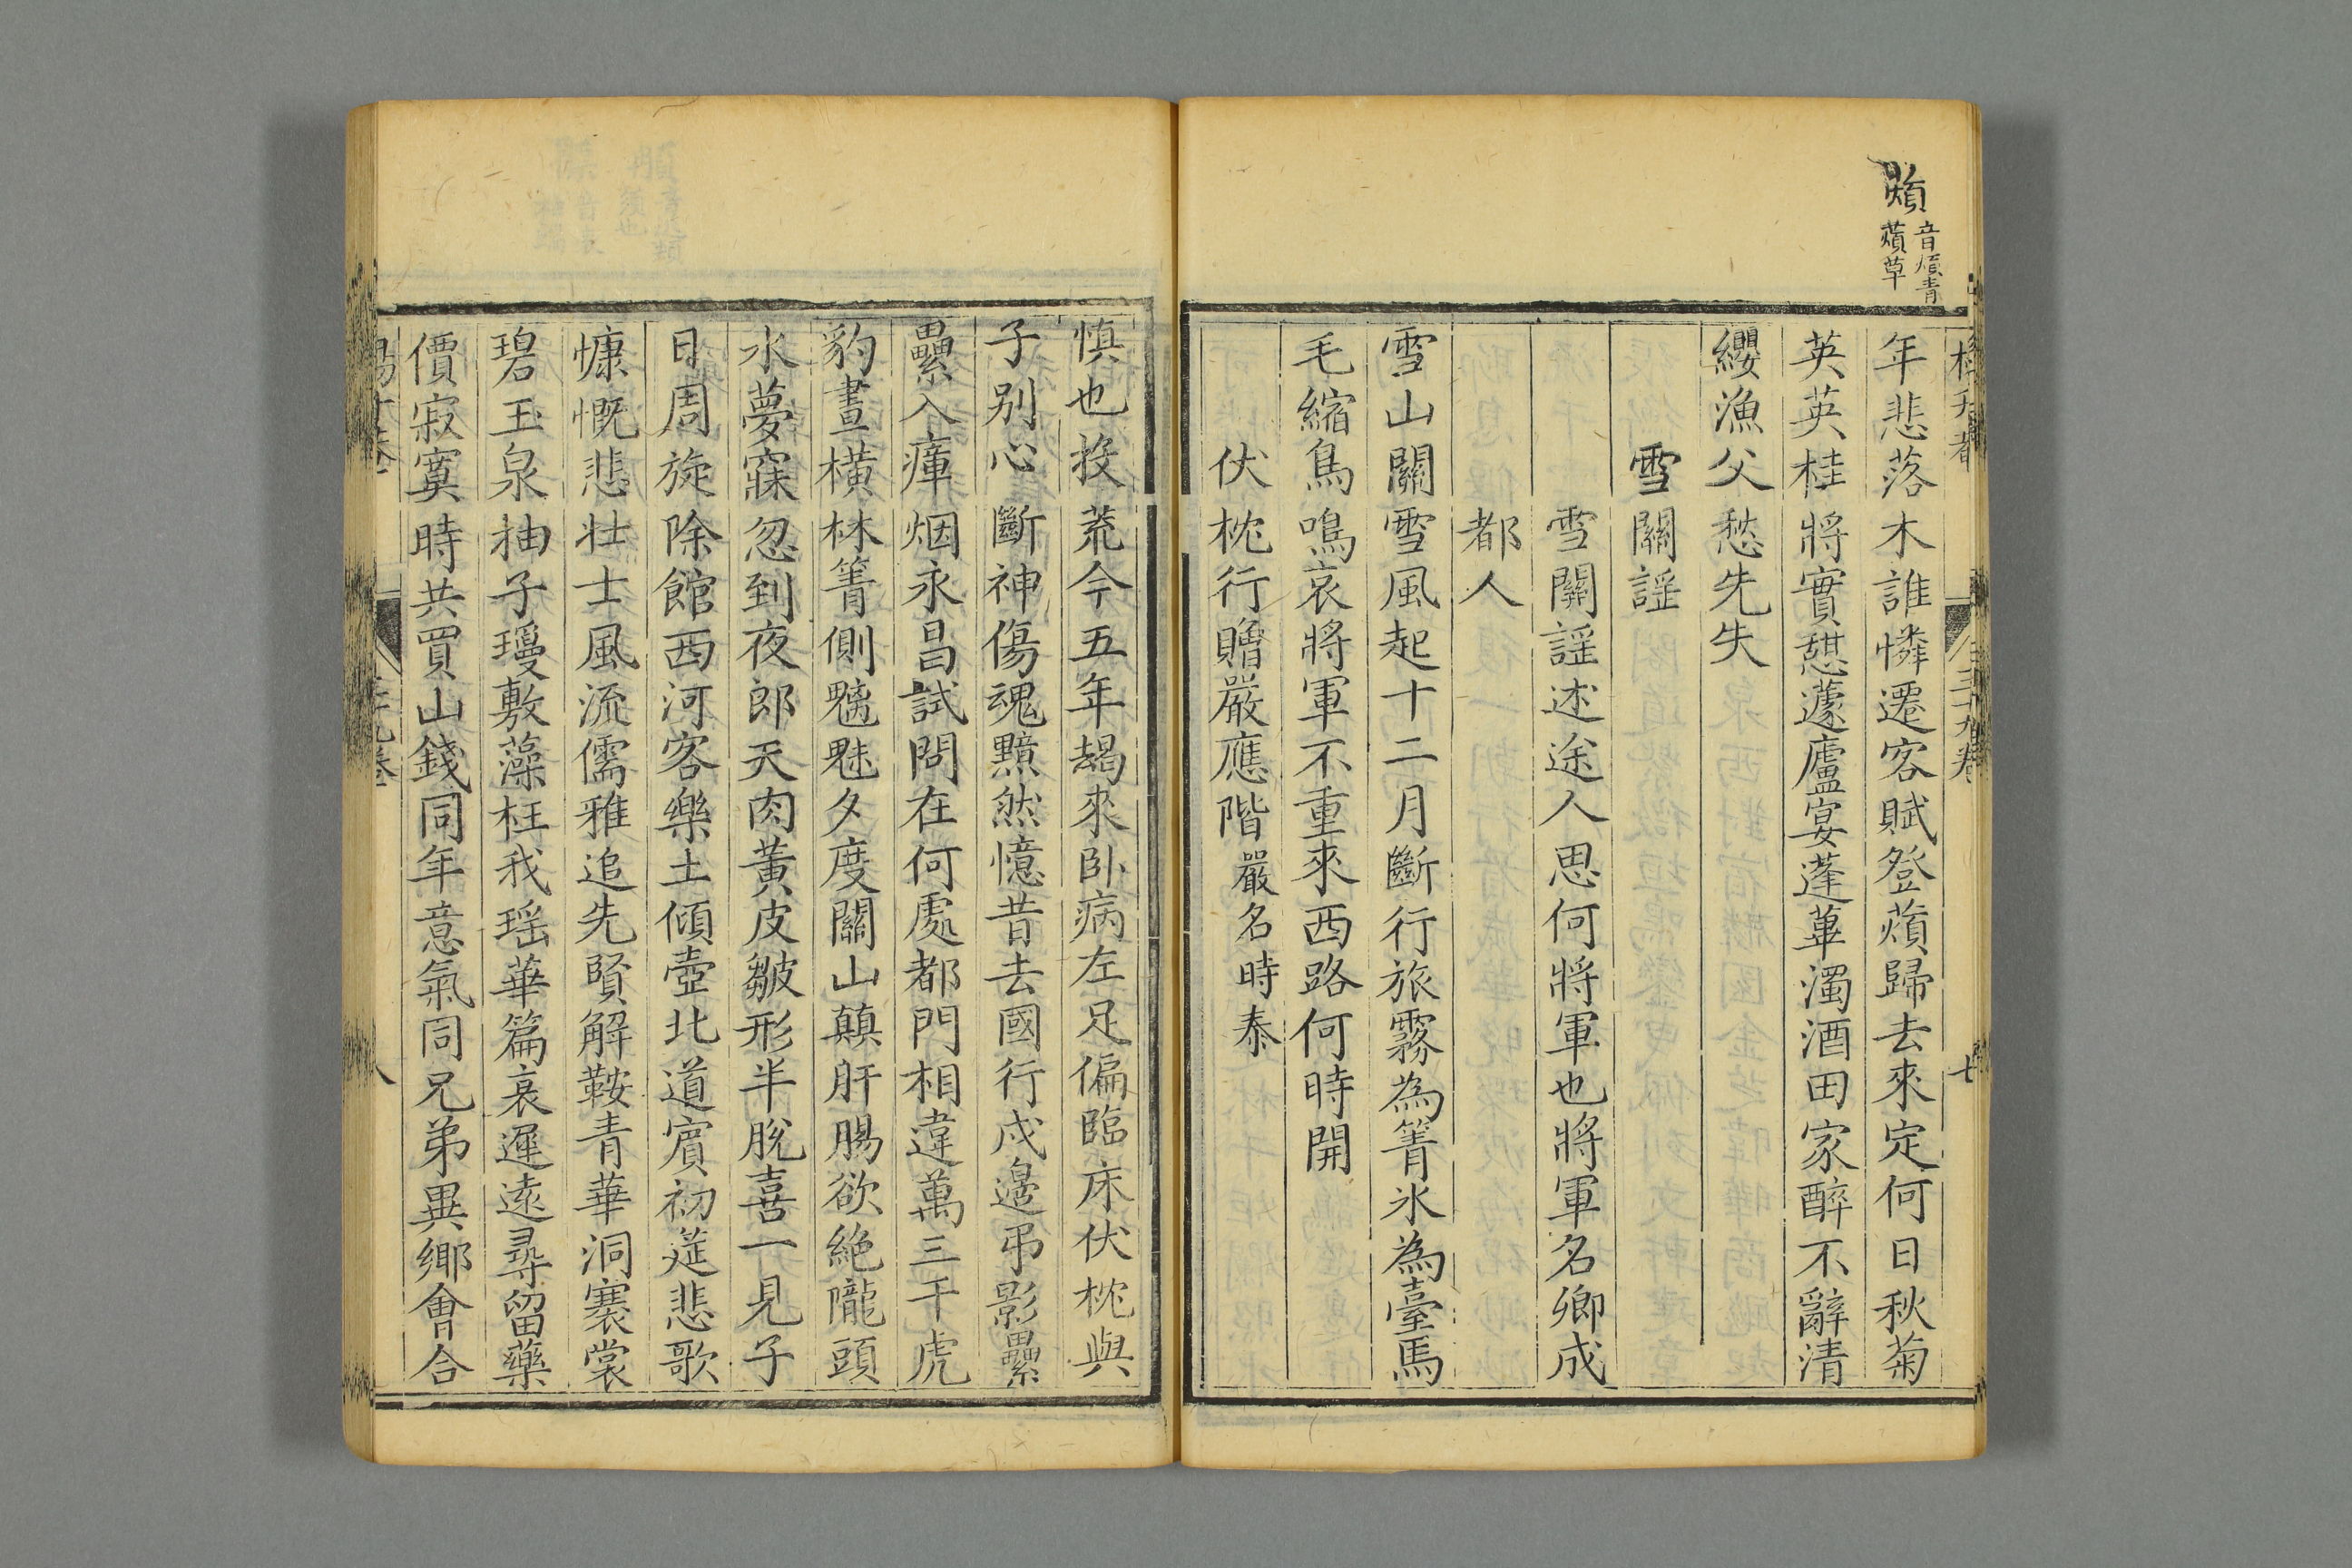 薠
音煩青
薠草
年悲落木誰憐遷客賦登薠歸去來定何日秋菊
英英桂將實憇蘧廬宴蓬蓽濁酒田家醉不辭清
纓漁父愁先失
雪關謡
雪關謡述途人思何將軍也將軍名卿成
都人
雪山關雪風起十二月斷行旅霧為箐氷為臺馬
毛縮鳥鳴哀將軍不重來西路何時開
伏枕行贈嚴應階嚴名時泰
慎也投荒今五年朅來卧病左足偏臨床伏枕與
子別心斷神傷魂黯然憶昔去國行戍邉弔影纍
纍入瘴烟永昌試問在何處都門相違萬三千虎
豹晝橫林箐側魑魅夕度關山顛肝腸欲絶隴頭
水夢寐忽到夜郎天肉黃皮皺形半脫喜一見子
日周旋除館西河客樂土傾壺北道賓初筵悲歌
慷慨悲壮士風流儒雅追先賢解鞍青華洞褰裳
碧玉泉抽子瓊敷藻枉我瑶華篇哀遲遠尋留藥
價寂寞時共買山錢同年意氣同兄弟異鄉會合